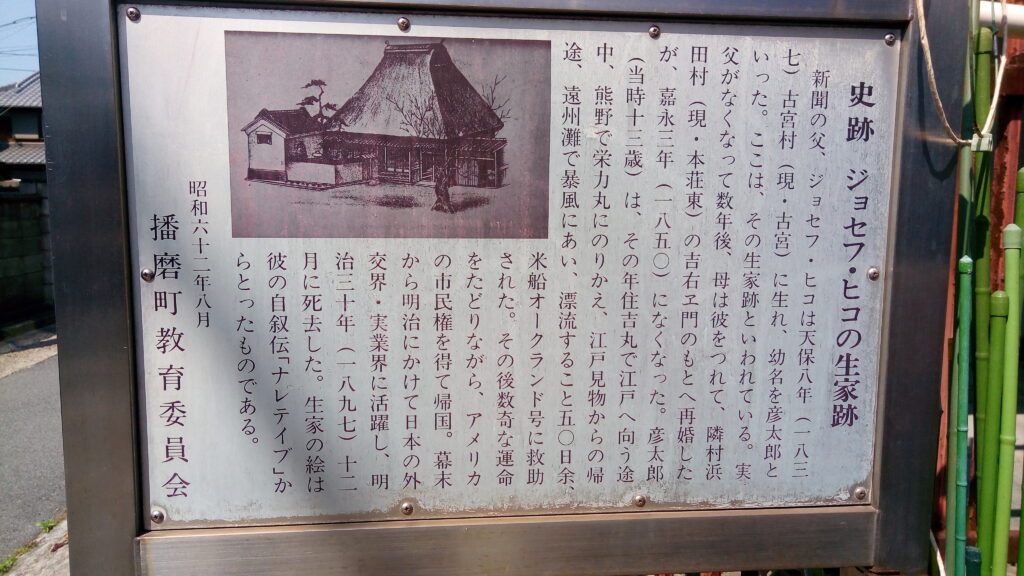 史跡 ジョセフ・ヒコの生家跡
新聞の父、ジョセフ・ヒコは天保八年（一八三
七）古宮村（現・古宮）に生れ、幼名を彦太郎と
いった。ここは、その生家跡といわれている。実
父がなくなって数年後、母は彼をつれて、隣村浜
田村（現・本荘東）の吉右ヱ門のもとへ再婚した
が、嘉永三年（一八五〇）になくなった。彦太郎
（当時十三歳）は、その年住吉丸で江戸へ向う途
中、熊野で栄力丸にのりかえ、江戸見物からの帰
途、遠州灘で暴風にあい、漂流すること五〇日余、
米船オークランド号に救助
された。その後数奇な運命
をたどりながら、アメリカ
の市民権を得て帰国。幕末
から明治にかけて日本の外
交界・実業界に活躍し、明
治三十年（一八九七）十二
月に死去した。生家の絵は
彼の自叙伝「ナレテイブ」か
らとったものである。
昭和六十二年八月
播磨町教育委員会